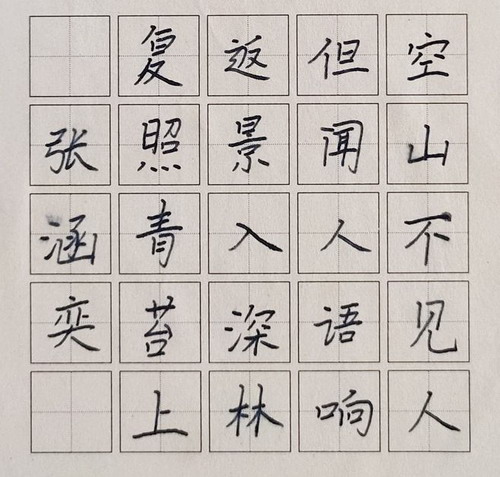 空山不见人
但闻人语响
返景入深林
复照青苔上
张涵奕